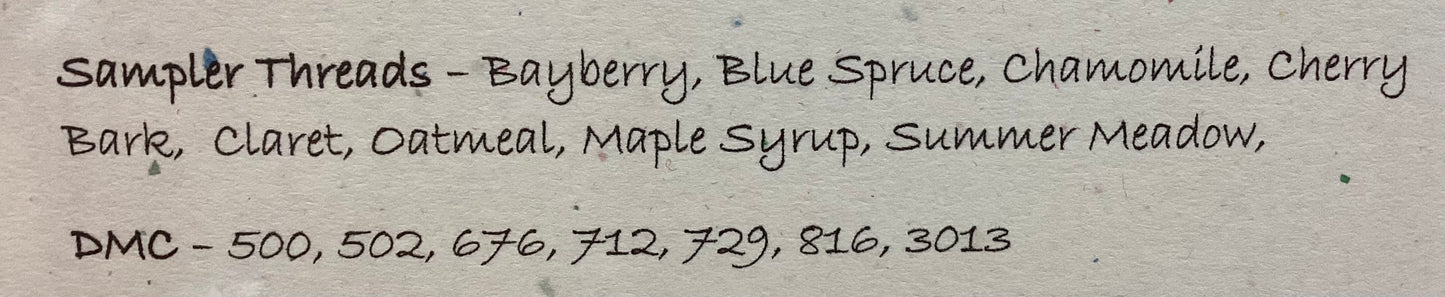 Sampler Threads - Bayberry, Blue Spruce, Chamomile, Cherry
Bark, Claret, Oatmeal, Maple Syrup, Summer Meadow,
DMC - 500, 502, 676, 712, 729, 816, 3013